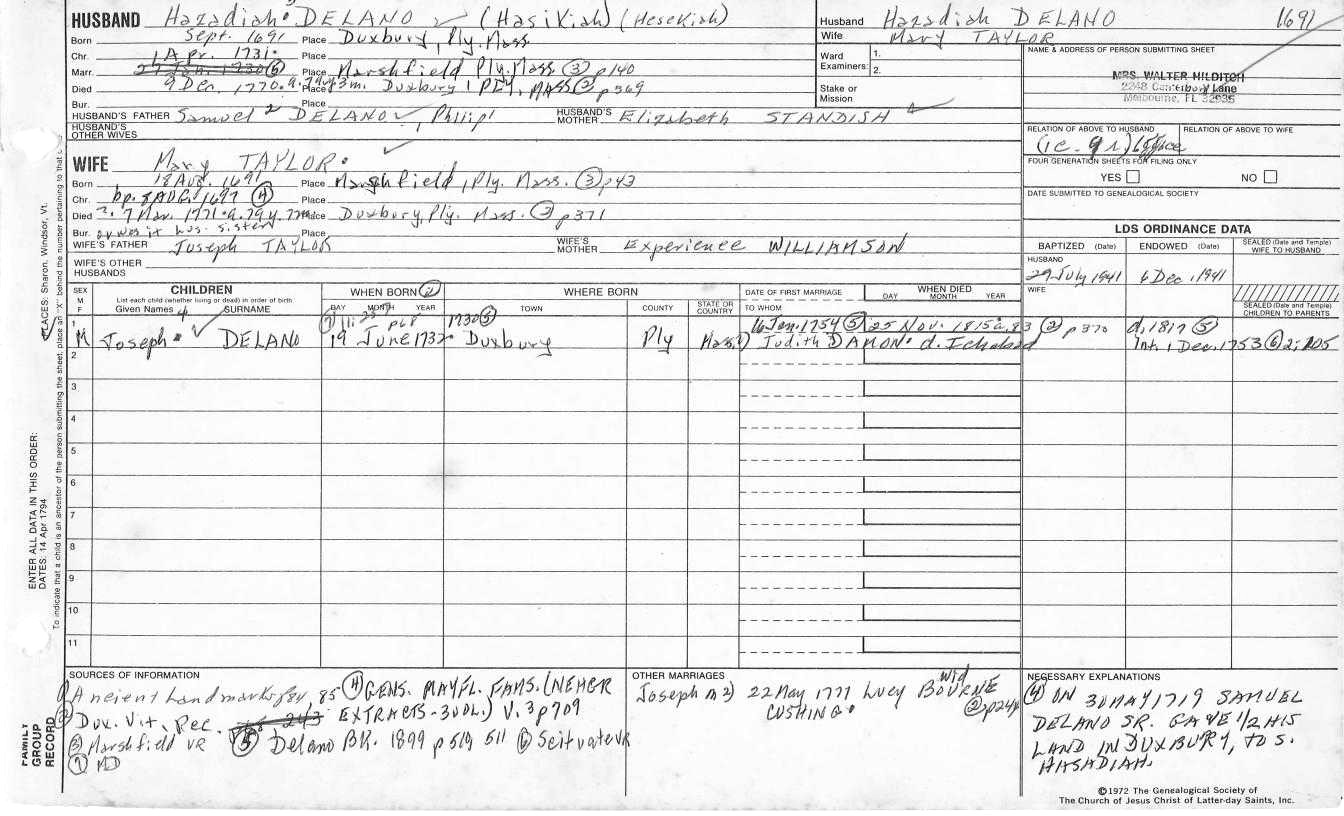 HUSBAND Hazadiah DELANO (HasiKiah) (Hesekiah)
Born Sept. 1691 Place Duxbury, Ply. Mass.
Chr. 1 Apr. 1731 Place
Marr. Place Marshfield Ply. Mass. ③ p140
Died 9 Dec. 1770 Place Duxbury, PLY. MASS ② p369
Bur. Place
HUSBAND'S FATHER Samuel² DELANO, Philip¹ HUSBAND'S MOTHER Elizabeth STANDISH
HUSBAND'S OTHER WIVES
WIFE Mary TAYLOR
Born 18 Aug. 1691 Place Marshfield, Ply. Mass. ③ p43
Chr. bp. 8 AUG. 1697 ④ Place
Died ? 7 Mar. 1771 a. 79 y. 7 m Place Duxbury, Ply. Mass. ② p371
Bur. or was it his sister Place
WIFE'S FATHER Joseph TAYLOR WIFE'S MOTHER Experience WILLIAMSON
WIFE'S OTHER HUSBANDS
Husband Hazadiah DELANO 1691
Wife Mary TAYLOR
Ward Examiners: 1. 2.
Stake or Mission
NAME & ADDRESS OF PERSON SUBMITTING SHEET
MRS. WALTER HILDITCH
2248 Canterbury Lane
Melbourne, FL 32935
RELATION OF ABOVE TO HUSBAND RELATION OF ABOVE TO WIFE
FOUR GENERATION SHEETS FOR FILING ONLY
YES NO
DATE SUBMITTED TO GENEALOGICAL SOCIETY
LDS ORDINANCE DATA
BAPTIZED (Date) ENDOWED (Date) SEALED (Date and Temple) WIFE TO HUSBAND
HUSBAND
29 July 1941 6 Dec. 1941
WIFE
SEALED (Date and Temple) CHILDREN TO PARENTS
SEX M F
CHILDREN
List each child (whether living or dead) in order of birth
Given Names SURNAME
WHEN BORN ②
DAY MONTH YEAR
WHERE BORN
TOWN COUNTY STATE OR COUNTRY
DATE OF FIRST MARRIAGE
TO WHOM
WHEN DIED
DAY MONTH YEAR
p68 1730⑤ 16 Jan. 1754 ⑤ 25 Nov. 1815 a. 83 ② p370 d. 1817 ⑤
1 M Joseph DELANO 19 June 1732 Duxbury Ply Mass. Judith DAMON d. Ichabod Int. 1 Dec. 1753 ⑥ 2:105
2
3
4
5
6
7
8
9
10
11
SOURCES OF INFORMATION
① Ancient Landmarks 85 ④ GENS. MAYFL. FAMS. (NEHGR
② Dux. Vit. Rec. EXTRACTS-3VOL.) V. 3 p709
③ Marshfield VR ⑤ Delano BK. 1899 p 519 511 ⑥ Scituate VR
⑦ MD
OTHER MARRIAGES
Joseph m 2) 22 May 1777 Lucy BOURNE wid
CUSHING ② p244
NECESSARY EXPLANATIONS
④ ON 30 MAY 1719 SAMUEL
DELANO SR. GAVE 1/2 HIS
LAND IN DUXBURY, TO S.
HASADIAH.
©1972 The Genealogical Society of
The Church of Jesus Christ of Latter-day Saints, Inc.
PLACES: Sharon, Windsor, Vt.
ENTER ALL DATA IN THIS ORDER:
DATES: 14 Apr 1794
To indicate that a child is an ancestor of the person submitting the sheet, place an "X" behind the number pertaining to that c
FAMILY GROUP RECORD